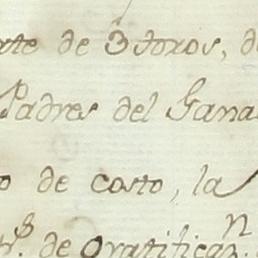 rte de 3 toros, d
Padres del Gana
o de costo, la
r.s de Gratifican.n